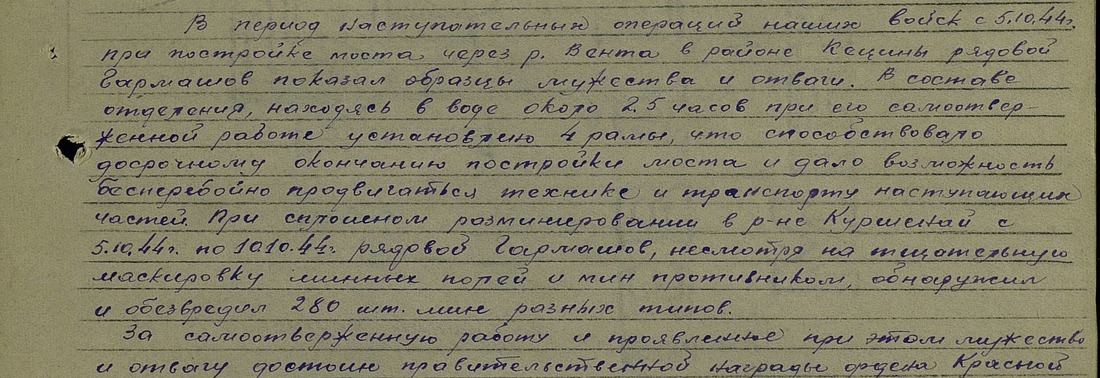 В период наступательных операций наших войск с 5.10.44г.
при постройке моста через р. Вента в районе Кецины рядовой
Гармашов показал образцы мужества и отваги. В составе
отделения, находясь в воде около 2.5 часов при его самоотвер-
женной работе установлено 4 рамы, что способствовало
досрочному окончанию постройки моста и дало возможность
бесперебойно продвигаться технике и транспорту наступающих
частей. При сплошном разминировании в р-не Куршскай с
5.10.44г. по 10.10.44г. рядовой Гармашов, несмотря на тщательную
маскировку минных полей и мин противником, обнаружил
и обезвредил 280 шт. мин разных типов.
За самоотверженную работу и проявленные при этом мужество
и отвагу достоин правительственной награды ордена Красной